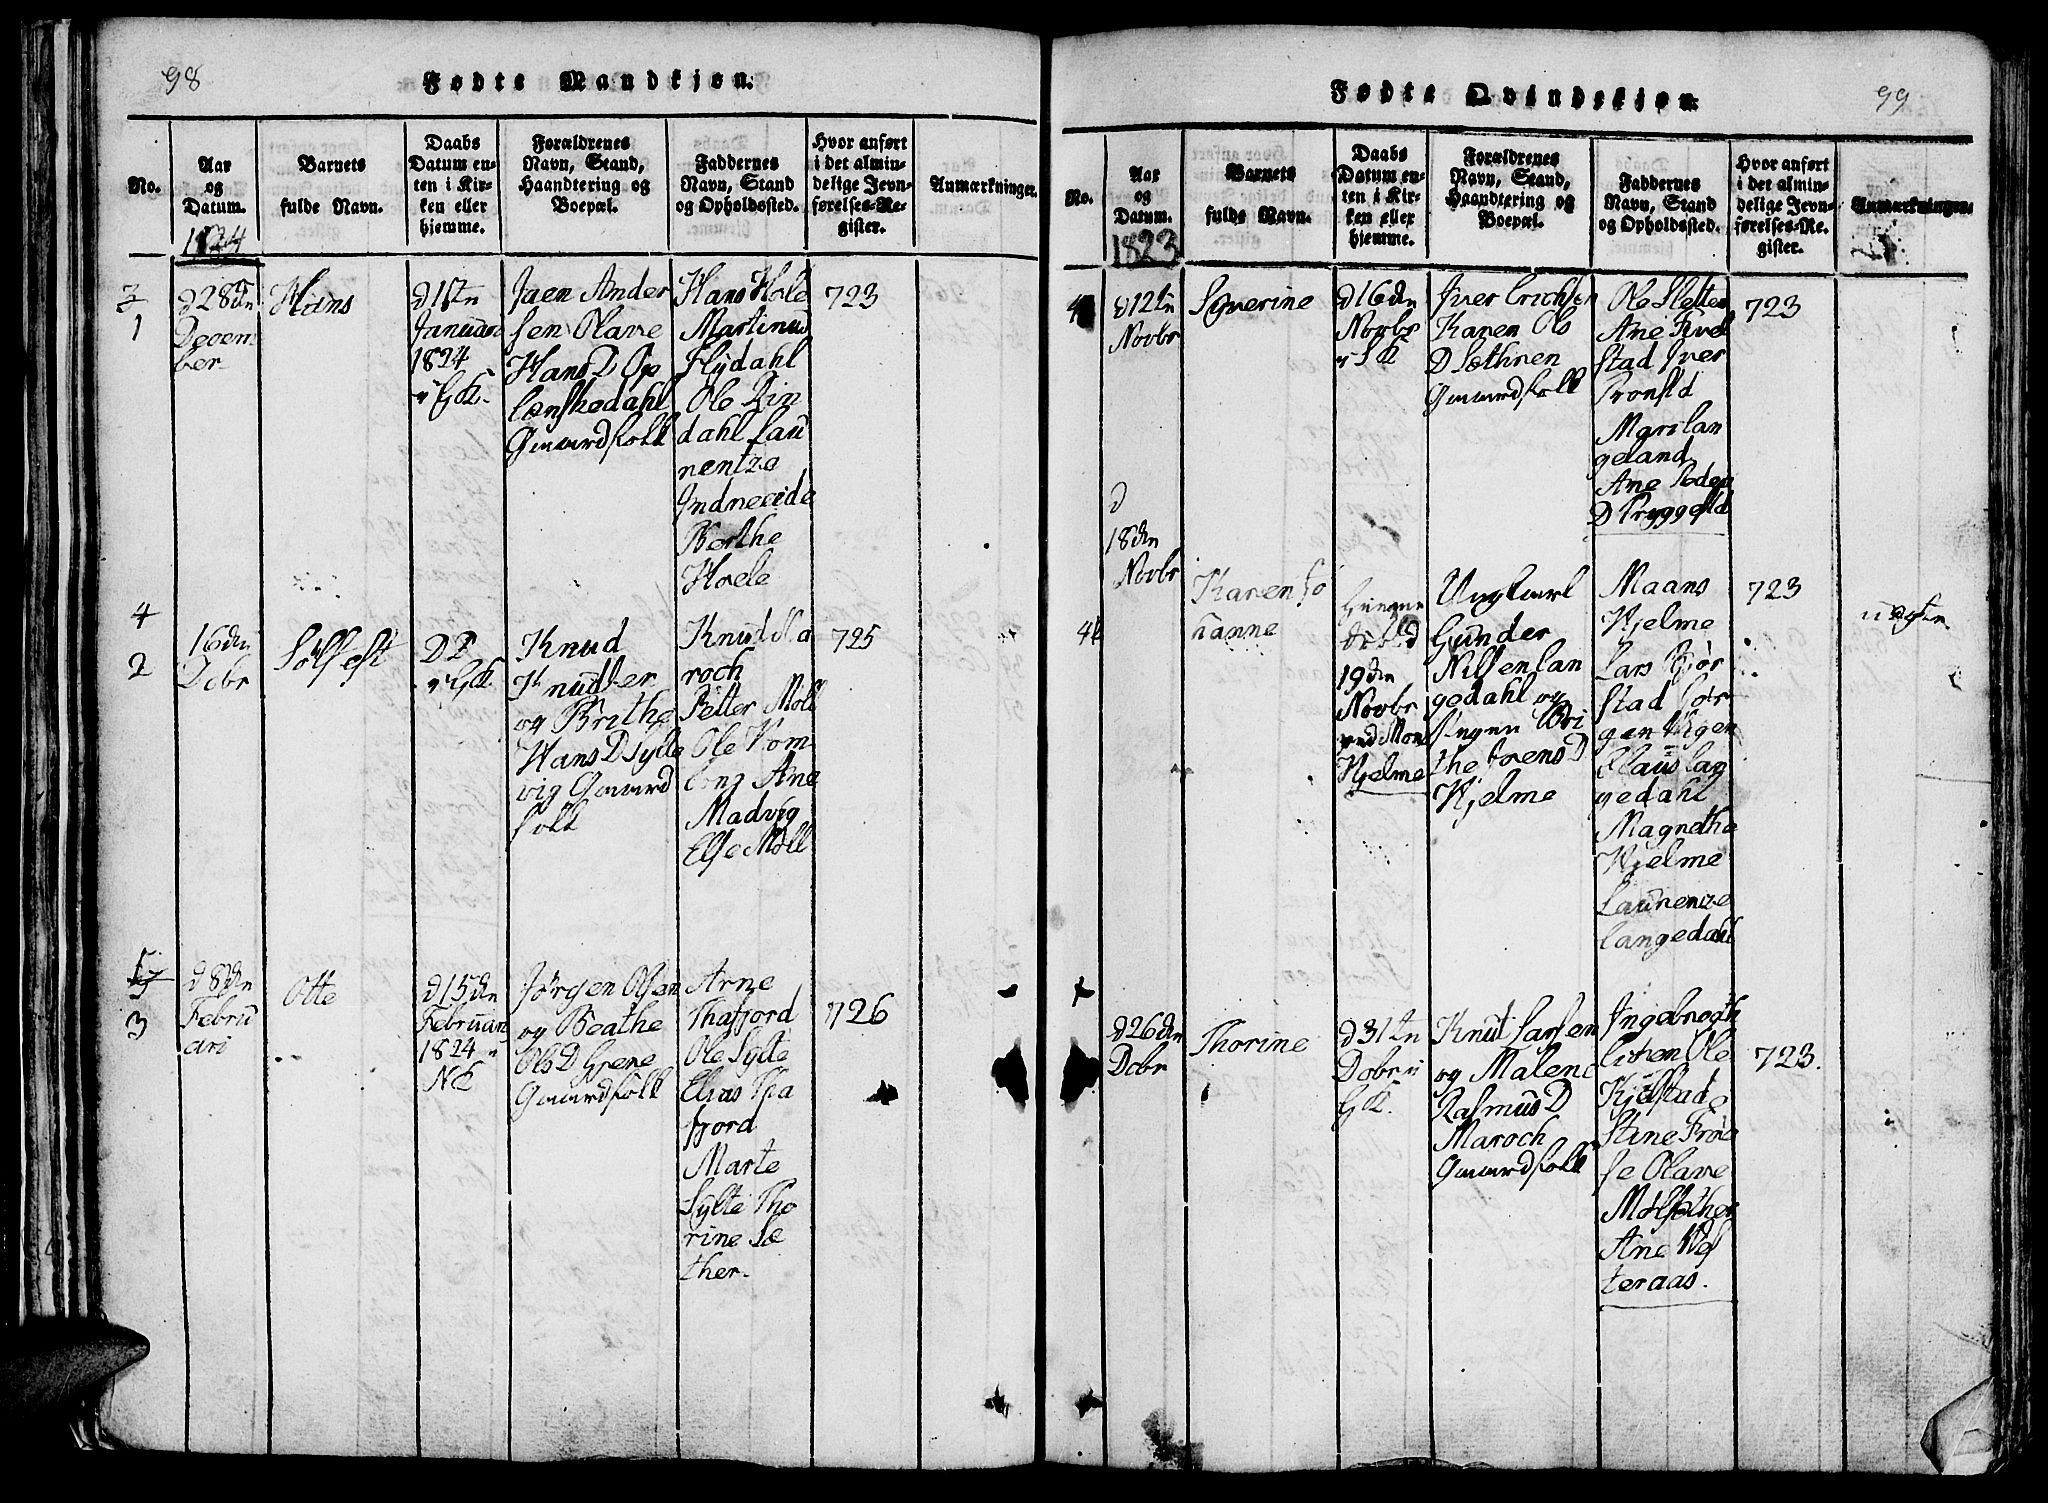 98
Fødte Mandkjøn.
No.
Aar
og
Datum.
Barnets
fulde Navn.
Daabs
Datum en-
ten i Kir-
ken eller
hjemme.
Forældrenes
Navn, Stand,
Haandtering og
Boepæl.
Faddernes
Navn, Stand
og Opholdssted.
Hvor anført
i det almin-
delige Jevn-
førelses-Re-
gister.
Anmærkninger.
1824
3
1
d 28de
Decem
ber
Hans
d 1ste
Januari
1824
Jaen Ander
sen Olave
Hans D
Gaardfolk
Hans Hole
Martinus
Flydahl
Ole Rin
dahl Lau
rentze
Indreeide
Berthe
Hoele
723
4
2
16de
Dcbr
Solfest
D D
Knud
Knudsen
og Brithe
Hans D Sylte
vig Gaard
folk
Knud Ma
roch
Petter Moll
Ole
Ane
Madvig
Else Moll
725
5
3
d 8de
Febru
ari
Otte
d 15de
Februari
1824
Jørgen Olsen
og Beathe
Ols D
Gaardfolk
Arne
Thafjord
Ole Sylte
Elias Tha
fjord
Marte
Sylte Tho
rine Sæ
ther
726
99
Fødte Qvindekjøn.
No.
Aar
og
Datum.
Barnets
fulde Navn.
Daabs
Datum en-
ten i Kir-
ken eller
hjemme.
Forældrenes
Navn, Stand,
Haandtering og
Boepæl.
Faddernes
Navn, Stand
og Opholdssted.
Hvor anført
i det almin-
delige Jevn-
førelses-Re-
gister.
Anmærkninger.
1823
d 12te
Novbr
Severine
d 16de
Novbr
Iver Erichsen
Karen Ols
D Sæthren
Gaardfolk
Ole Sletten
Ane
stad Iver
Mari Lan
geland
Ane Peder
D
723
d
18de
Novbr
Karen Jo
hanne
19de
Novbr
Hjelme
Ungkarl
Gunder
Nilsen Lan
gedahl og
Bri
the Jorens D
Hjelme
Maans
Hjelme
Lars
stad Jør
gen
Claus Lan
gedahl
Magnethe
Hjelme
Laurenze
Langedahl
723
uægte
d 26de
Dcbr
Thorine
d 31te
Dcbr i
Knut Larsen
og Malene
Rasmus D
Maroch
Gaardfolk
Ingebrogth
Ole
Stine
Olave
Ane
teraas.
723.